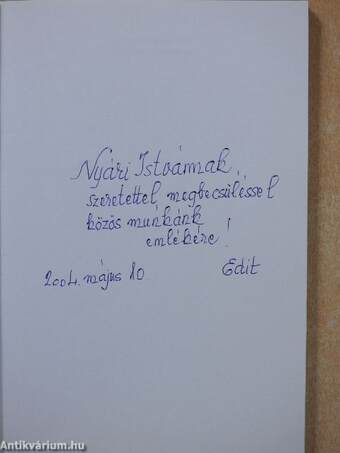 Nyári Istvánnak
szeretettel, megbecsüléssel
közös munkánk
emlékére!
2004. május 10 Edit
Antikvárium.hu